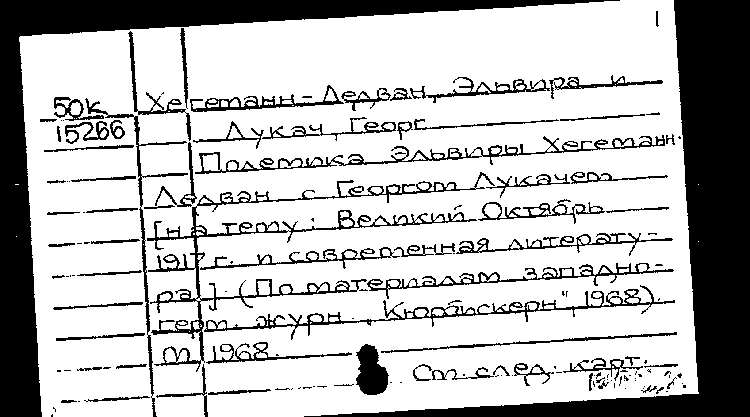 1
50к Хегеманн-Ледван, Эльвира и
15266 Лукач, Георг
Полемика Эльвиры Хегеманн-
Ледван с Георгом Лукачем
[на тему: Великий Октябрь
1917 г. и современная литерату-
ра] (По материалам западно-
герм. журн. "Кюрбискерн", 1968).
М, 1968.
См. след. карт.